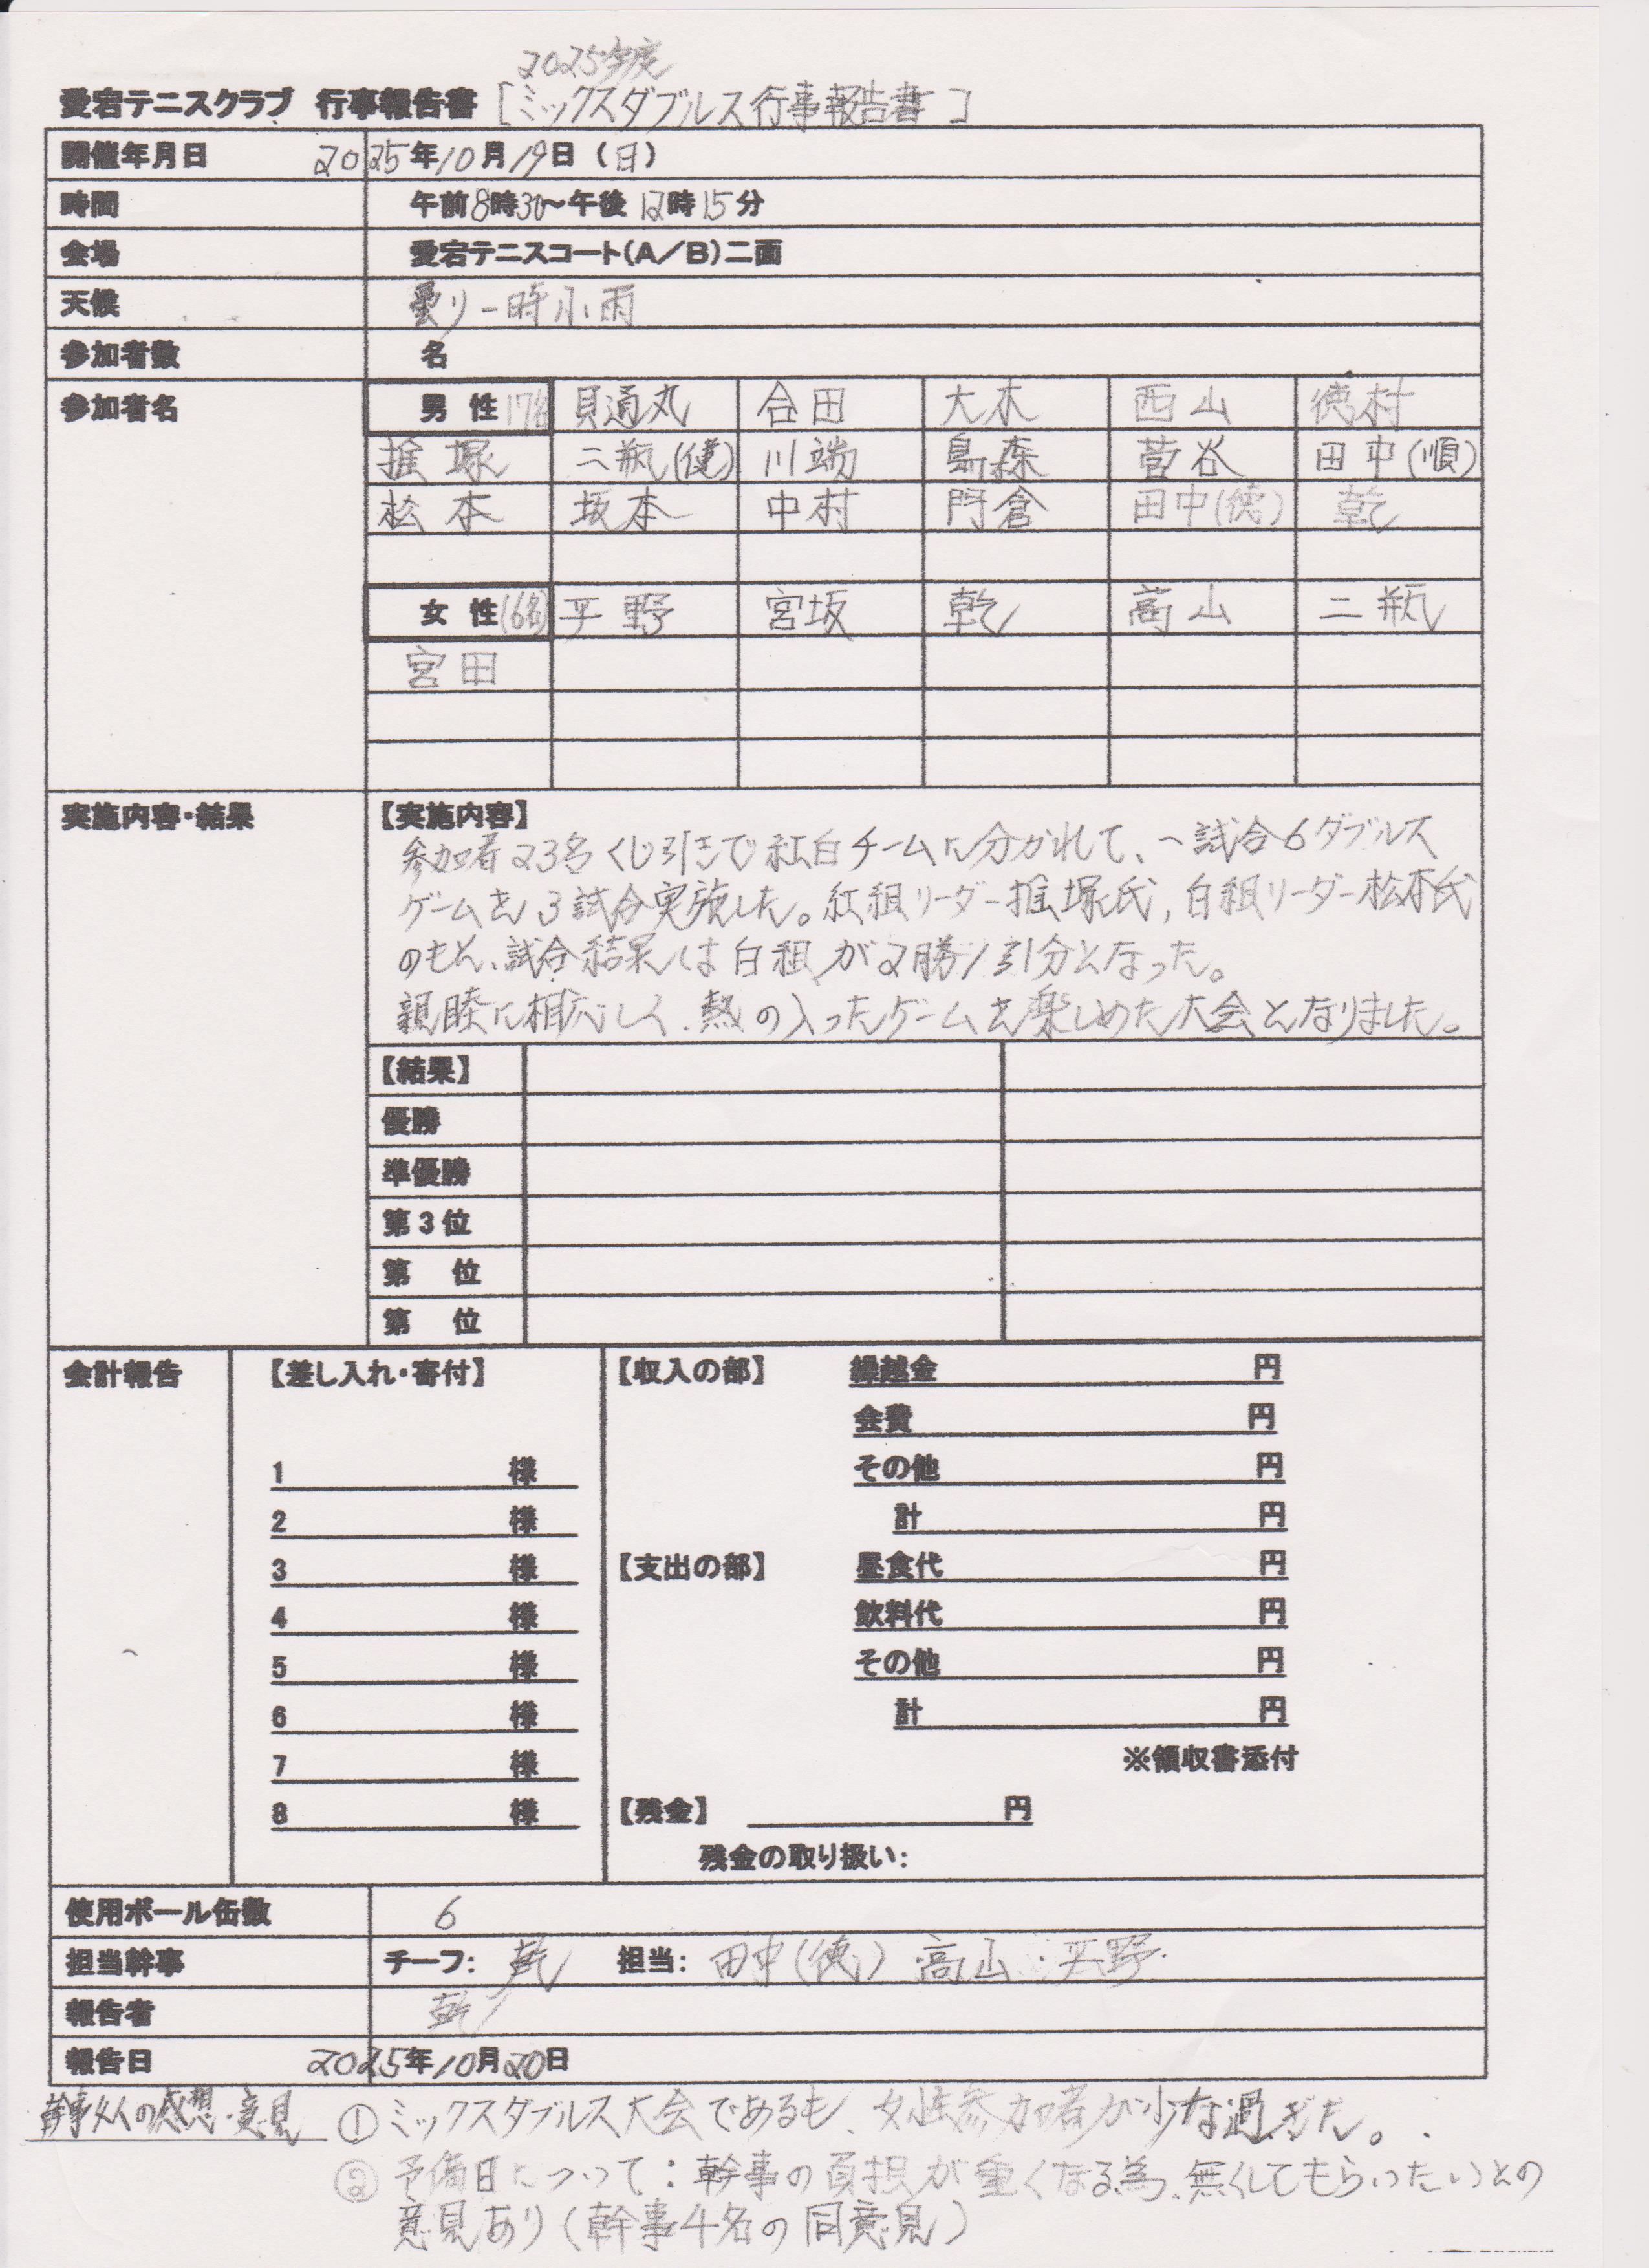 2025年度
愛宕テニスクラブ 行事報告書 [ミックスダブルス行事報告書]
開催年月日 2025年10月19日(日)
時間 午前8時30~午後12時15分
会場 愛宕テニスコート(A/B)二面
天候 曇り一時小雨
参加者数 名
参加者名 男性 17名 貝通丸 合田 大木 西山 徳村
推塚 二瓶(健) 川端 島森 菅谷 田中(順)
松本 坂本 中村 門倉 田中(徳) 乾
女性(6名) 平野 宮坂 乾 高山 二瓶
宮田
実施内容・結果 【実施内容】
参加者23名くじ引きで紅白チームに分かれて、一試合6ダブルス
ゲームを3試合実施した。紅組リーダー推塚氏,白組リーダー松本氏
のもと、試合結果は白組が2勝1引分となった。
親睦に相応しく、熱の入ったゲームを楽しめた大会となりました。
【結果】
優勝
準優勝
第3位
第 位
第 位
会計報告 【差し入れ・寄付】 【収入の部】 繰越金 円
会費 円
1 様 その他 円
2 様 計 円
3 様 【支出の部】 昼食代 円
4 様 飲料代 円
5 様 その他 円
6 様 計 円
7 様 ※領収書添付
8 様 【残金】 円
残金の取り扱い:
使用ボール缶数 6
担当幹事 チーフ: 乾 担当: 田中(徳) 高山 平野
報告者 乾
報告日 2025年10月20日
幹事4人の感想・意見 ①ミックスダブルス大会であるも、女性参加者が少な過ぎた。
②予備日について:幹事の負担が重くなる為、無くしてもらいたいとの
意見あり(幹事4名の同意見)